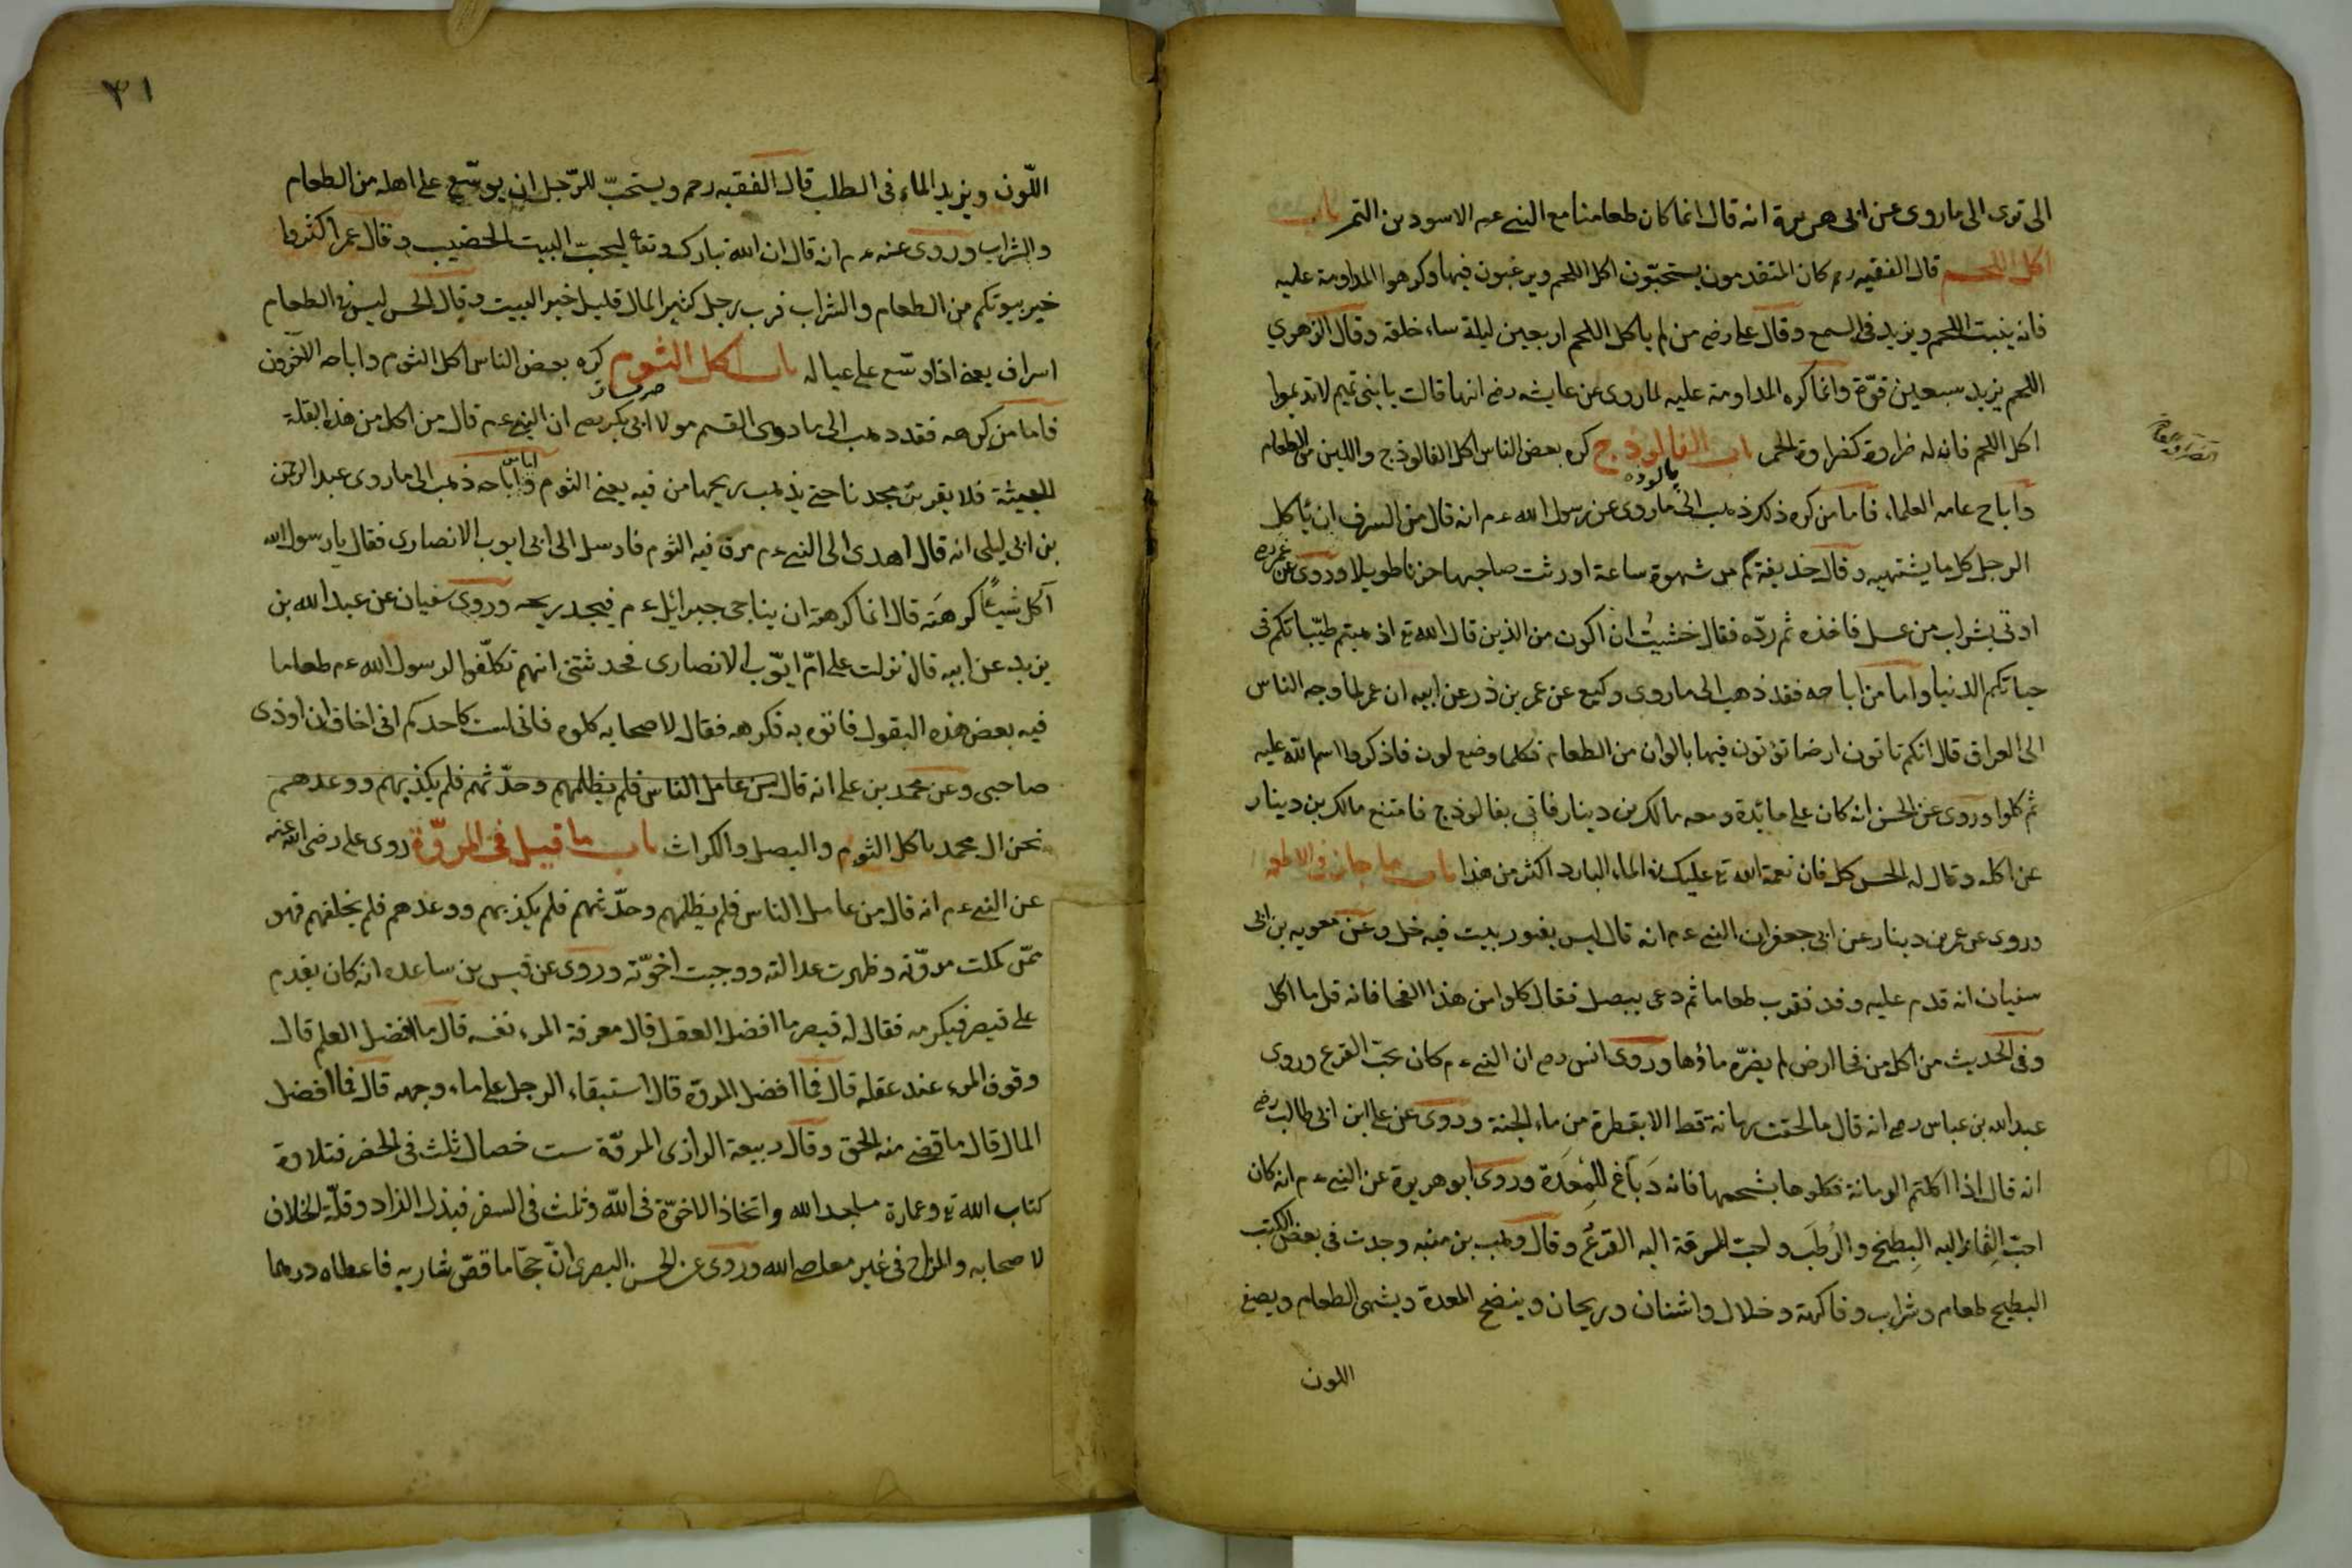 الى توى الى ما روى عن ابى هريرة انه قال انما كان طعامنا مع النبى عم الاسودين التمر باب
اكل اللحم قال الفقيه رح كان المتقدمون يستحبّون اكل اللحم ويرغبون فيها وكرهوا المداومة عليه
فانه ينبت اللحم ويزيد فى السمع وقال على رض من لم يأكل اللحم اربعين ليلة ساء خلقه وقال الزهري
اللحم يزيد سبعين قوّة وانما كره المداومة عليه لما روى عن عايشه رض انها قالت يا بنى تميم لا تديموا
اكل اللحم فانه له ضراوة كضراوة الخمر باب الفالوذج كره بعض الناس اكل الفالوذج واللين من الطعام
پالوده
واباح عامه العلماء فاما من كره ذلك ذهب الى ما روى عن رسول الله عم انه قال من السرف ان يأكل
الرجل كل ما يشتهيه وقال حذيفة كم من شهوة ساعة اورثت صاحبها حزنا طويلا وروى عن عمر رض
اوتى بشراب من عسل فاخذه ثم ردّه فقال خشيت ان اكون من الذين قال الله تع اذهبتم طيّباتكم فى
حياتكم الدنيا واما من اباحه فقد ذهب الى ما روى وكيع عن عمر بن ذر عن ابيه ان عمر لما وجه الناس
الى العراق قال انكم تاتون ارضا تؤتون فيها بالوان من الطعام فكلما وضع لون فاذكروا اسم الله عليه
ثم كلوا وروى عن الحسن انه كان على مائدة ومعه مالك بن دينار فاتى بفالوذج فامتنع مالك بن دينار
عن اكله وقال له الحسن كل فان نعمة الله تع عليك فى الماء البارد اكثر من هذا باب ما جاز فى الاطعمه
وروى عن عمر بن دينار عن ابى جعفر ان النبى عم انه قال ليس بفقور بيت فيه خل وعن معويه بن ابى
سفيان انه قدم عليه وفد فقرب طعاما ثم دعى ببصل فقال كلوا من هذا الفحا فانه قل ما اكل
وفى الحديث من اكل من فحا ارض لم يضرّه ماؤها وروى انس رض ان النبى عم كان يحبّ القرع وروى
عبد الله بن عباس رض انه قال ما لحقت رمانة قط الا بقطرة من ماء الجنة وروى عن على ابن ابى طالب رض
انه قال اذا اكلتم الرمانة فكلوها بشحمها فانه دَبَاّغ للِمُعَدَة وروى ابو هريرة عن النبى عم انه كان
احبّ اليه البِطيخ والرُطَب واحبّ المرقة اليه القرع وقال وهب بن منبه وجدت فى بعض الكتب
البطيح طعام وشراب وفاكهة وخلال واشنان وريحان وينضج المعدة ويشهى الطعام ويصفى
اللون
٣١
اللّون ويزيد الماء فى الطلب قال الفقيه رحم ويستحبّ للرّجل ان يوسّع على اهله من الطعام
والشراب وروى عنه عم انه قال ان الله تبارك وتعا ليحبّ البيت الخصيب وقال عمر اكثروا
خير بيوتكم من الطعام والشراب فرب رجل كثير المال قليل خير البيت وقال الحسن ليس فى الطعام
اسراف يعنى اذا وسّع على عياله باب اكل الثوم كره بعض الناس اكل الثوم واباحه الآخرون
فاما من كرهه فقد ذهب الى ما روى القسم مولا ابى بكر رض ان النبى عم قال من اكل من هذه البقلة
الخبيثة فلا يقربن مسجدنا حتى يذهب ريحها من فيه يعنى الثوم واباحه ذهب الى ما روى عبد الرحمن
بن ابى ليلى انه قال اهدى الى النبى عم مرق فيه الثوم فارسل الى ابى ايوب الانصارى فقال يا رسول الله
آكل شيئًا كرهتَه قال انما كرهته ان يناجى جبرائيل عم فيجد ريحه وروى سفيان عن عبد الله بن
يزيد عن ابيه قال نزلت على امّ ايّوب الانصارى فحدثتنى انهم تكلّفوا لرسول الله عم طعاما
فيه بعض هذه البقول فاتوه به فكرهه فقال لاصحابه كلوه فانى لست كاحدكم انى اخاف ان اوذى
صاحبى وعن محمد بن على انه قال من عامل الناس فلم يظلمهم وحدّثهم فلم يكذبهم ووعدهم
نحن ال محمد ناكل الثوم والبصل والكراث باب ما قيل فى المروّة روى على رضى الله عنه
عن النبى عم انه قال من عامل الناس فلم يظلمهم وحدّثهم فلم يكذبهم ووعدهم فلم يخلفهم فهو
ممّن كملت مروّته وظهرت عدالته ووجبت اخوّته وروى عن قيس بن ساعده انه كان يقدم
على قيصر فيكرمه فقال له قيصر ما افضل العقل قال معرفة المرء نفسه قال ما افضل العلم قال
وقوف المرء عند عقله قال فما افضل المروّة قال استبقاء الرجل على ماء وجهه قال فما افضل
المال قال ما قضى منه الحق وقال ربيعة الرازى المروّة ست خصال ثلث فى الحضر فتلاوة
كتاب الله تع وعمارة مساجد الله واتخاذ الاخوّة فى الله وثلث فى السفر فبذل الزاد وقلّة الخلاف
لاصحابه والمزاح فى غير معاصى الله وروى عن الحسن البصرى انّ حجّاما قصّ شاربه فاعطاه درهما